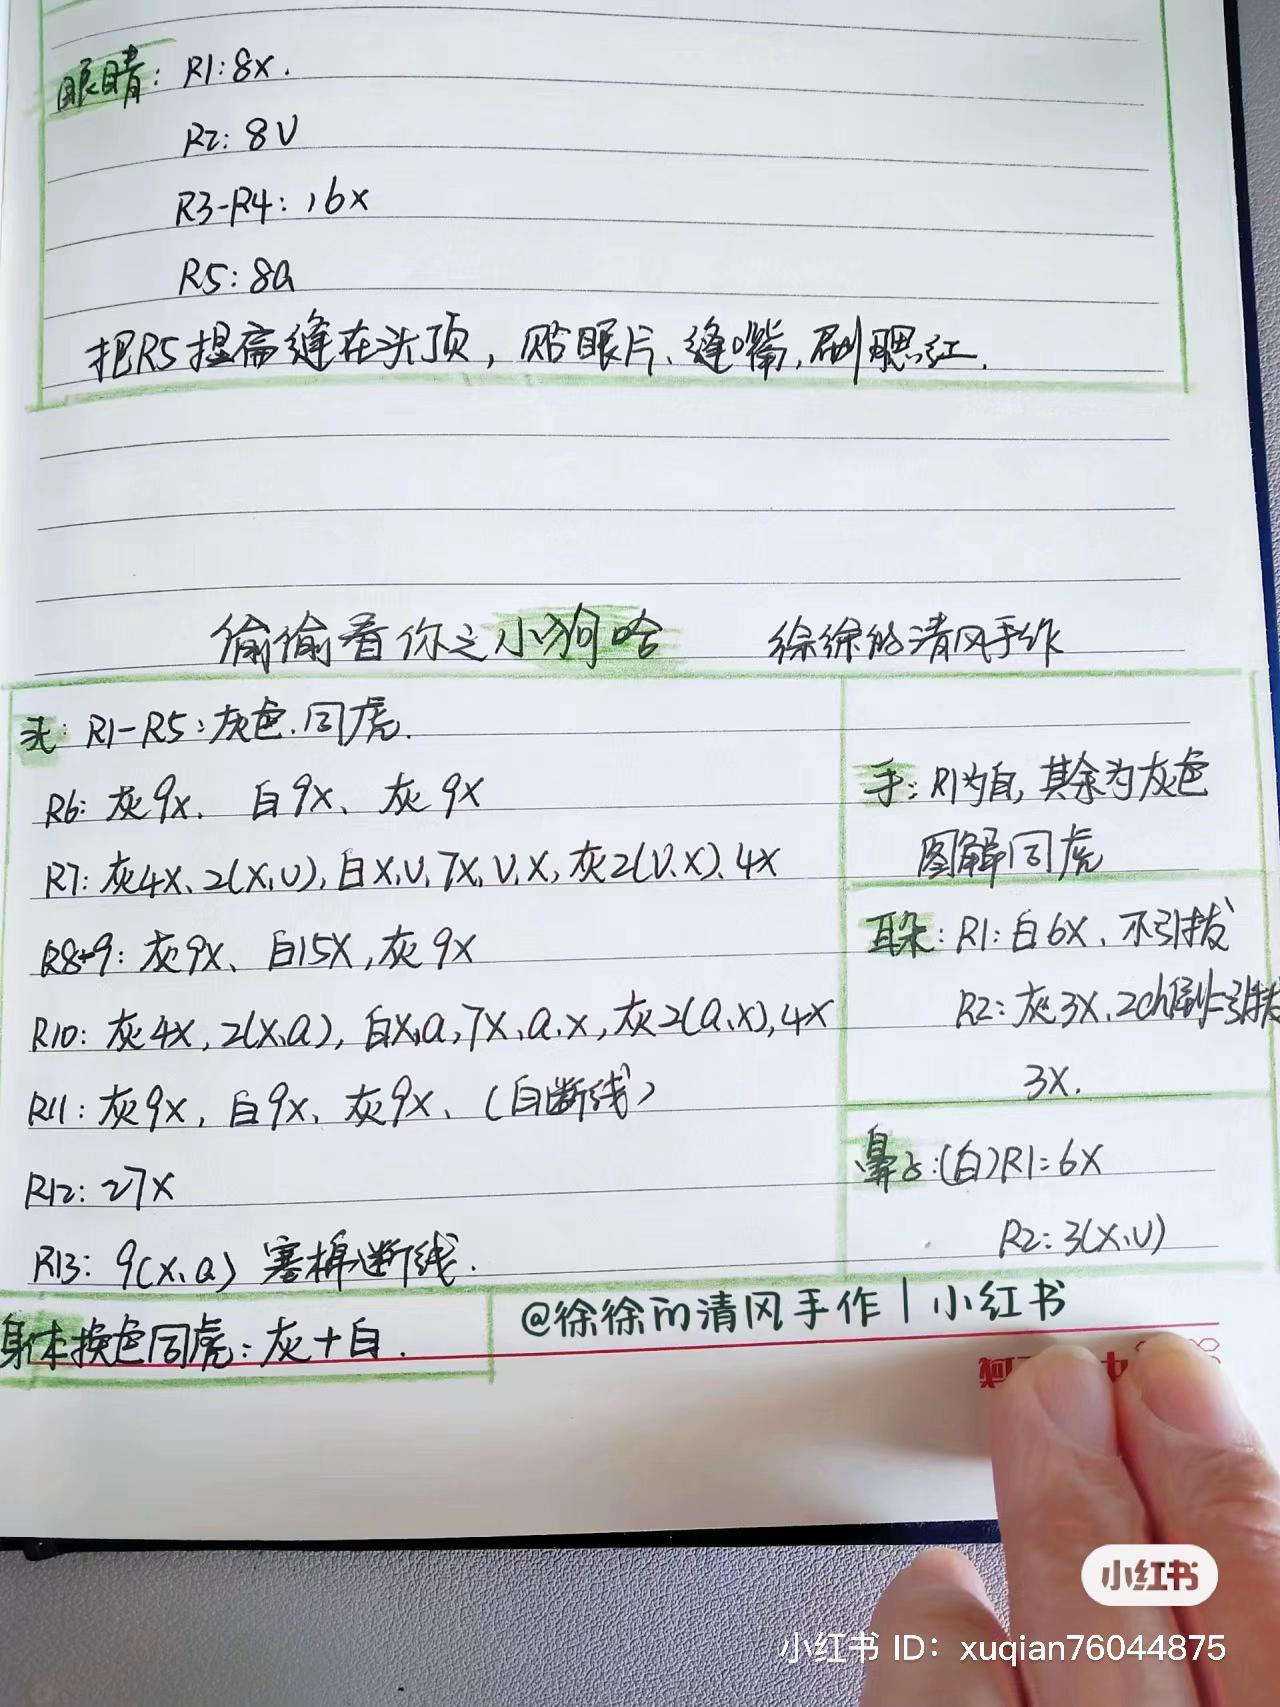 眼睛: R1:8X.
R2: 8V
R3-R4: 16X
R5: 8a
把R5捏扁缝在头顶, 贴眼片、缝嘴,刷腮红.
偷偷看你之小狗哈 徐徐的清风手作
头: R1-R5:灰色.同虎.
R6: 灰9X、白9X、灰9X
R7: 灰4X、2(X,V),白X,V,7X,V,X,灰2(V,X)、4X
R8-9: 灰9X、白15X,灰9X
R10: 灰4X, 2(X,a), 白X,a,7X,a,X,灰2(a,X),4X
R11: 灰9X, 白9X、灰9X、(白断线)
R12: 27X
R13: 9(X,a) 塞棉断线.
身体换色同虎:灰+白.
手: R1为白,其余为灰色
图解同虎
耳朵: R1:白6X、不引拔
R2:灰3X、2ch倒二引拔
3X.
鼻子:(白)R1:6X
R2:3(X,V)
@徐徐的清风手作 | 小红书
小红书
小红书 ID: xuqian76044875